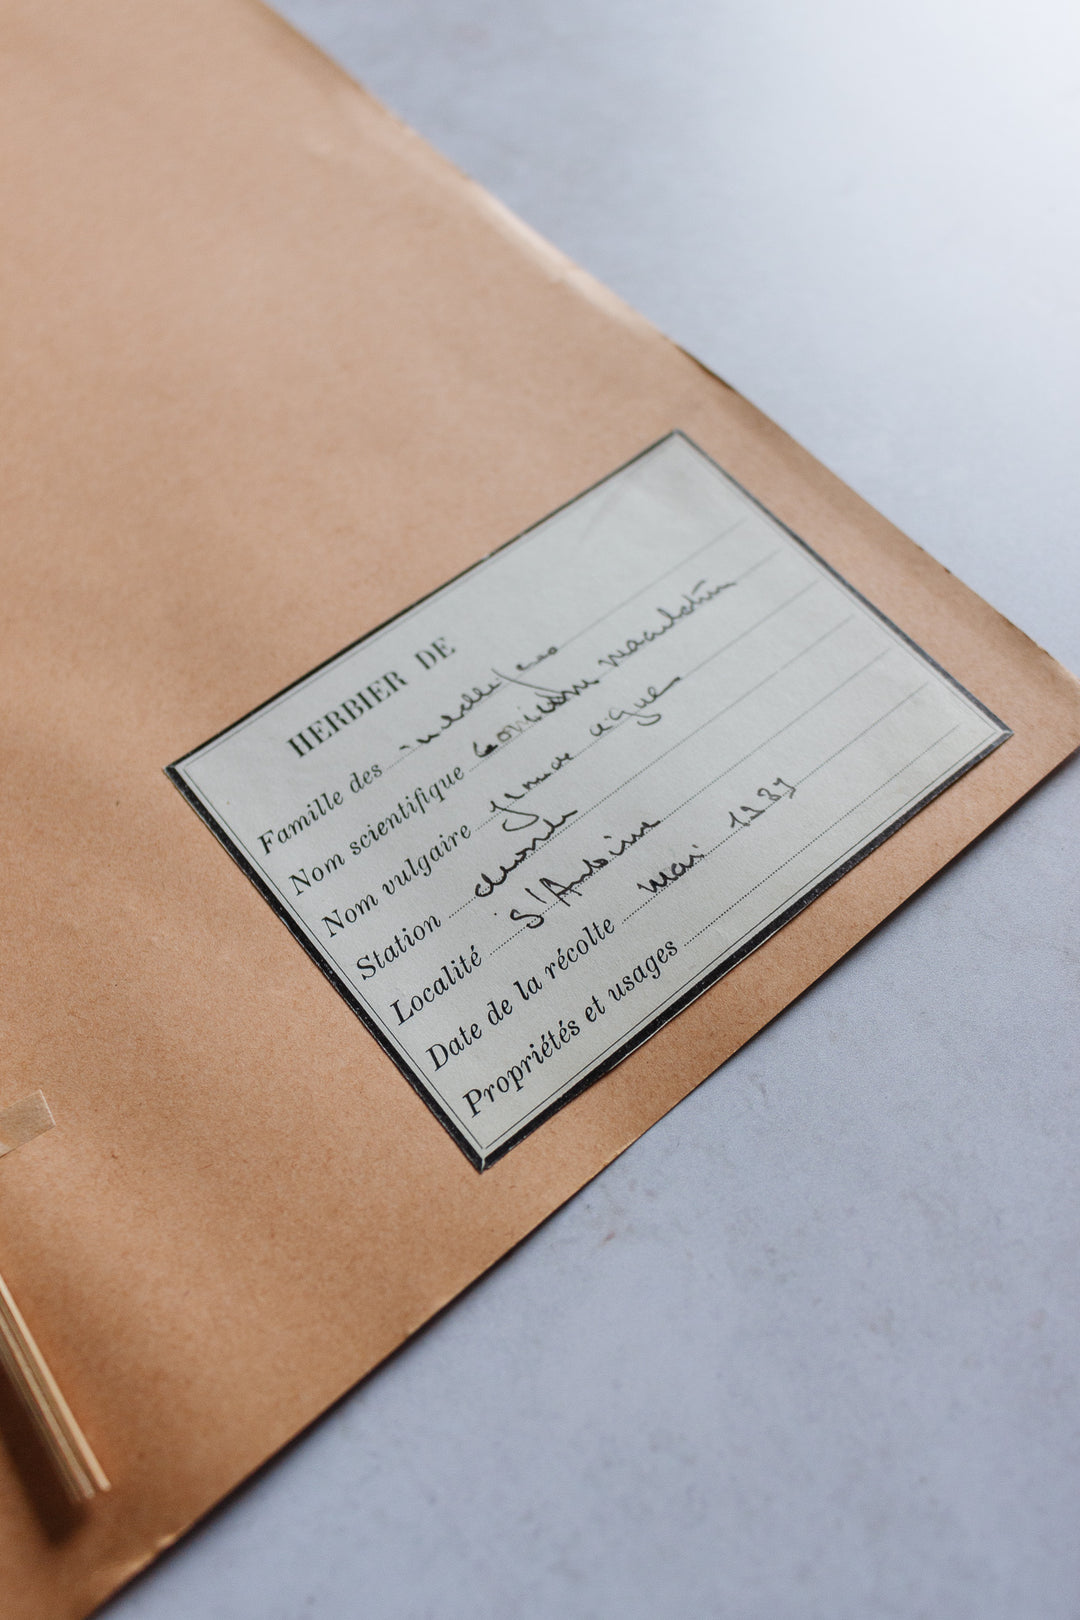 HERBIER DE
Famille des ombellifères
Nom scientifique Conium maculatum
Nom vulgaire grande cigue
Station
Localité St Antoine
Date de la récolte Mai
Propriétés et usages